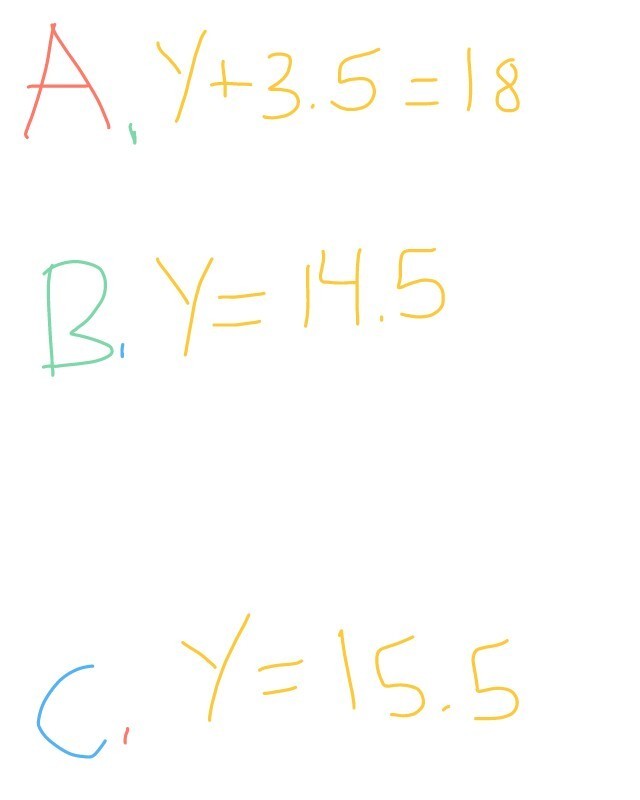 A. Y+3.5=18
B. Y=14.5
C. Y=15.5